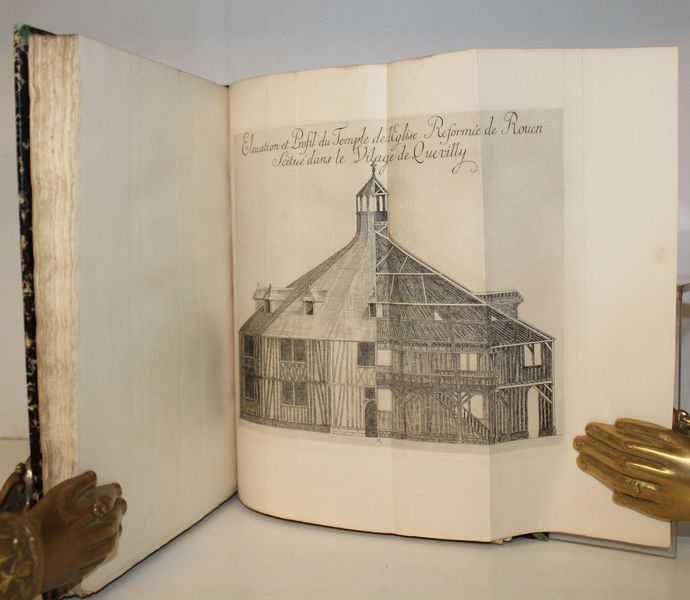 Eleuation et Profil du Temple de l'Eglise Reformée de Rouen
Scitüé dans le Vilage de Quevilly